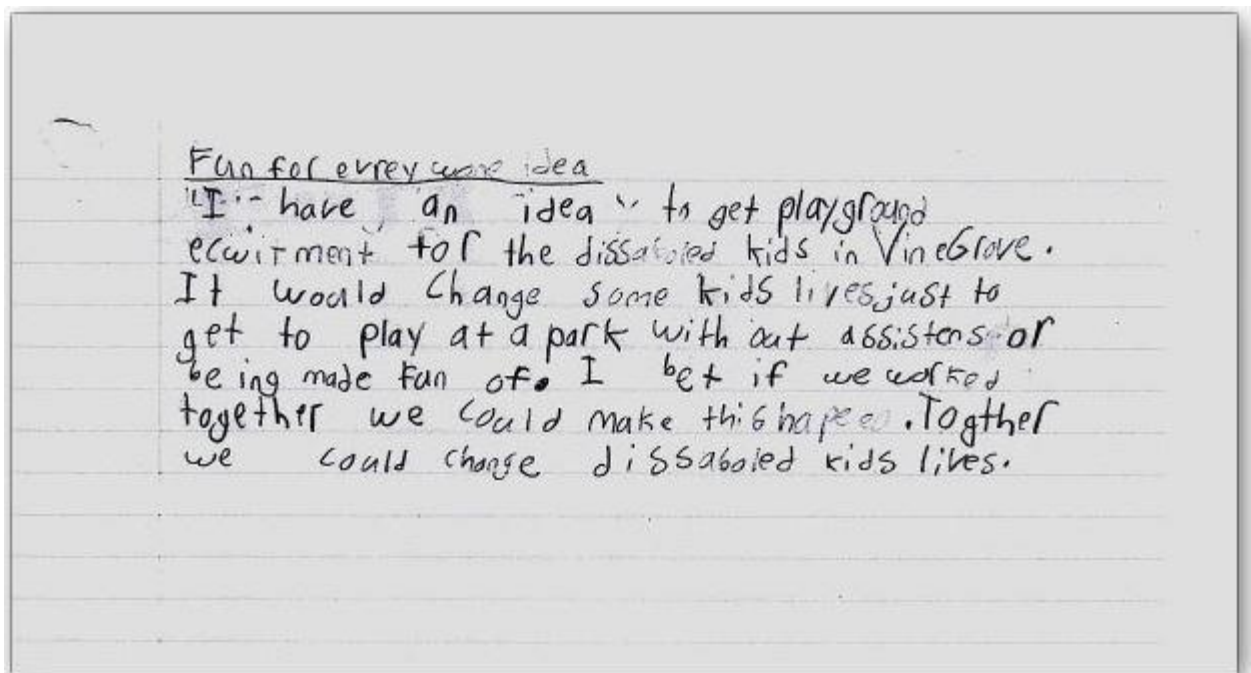 Fun for evrey wone idea
"I have an idea" to get playground
ecwirment for the dissaboled kids in VineGrove.
It would Change some kids lives, just to
get to play at a park with out assistens or
being made Fun of. I bet if we worked
together we could make this hapen. Togther
we could change dissaboled kids lives.